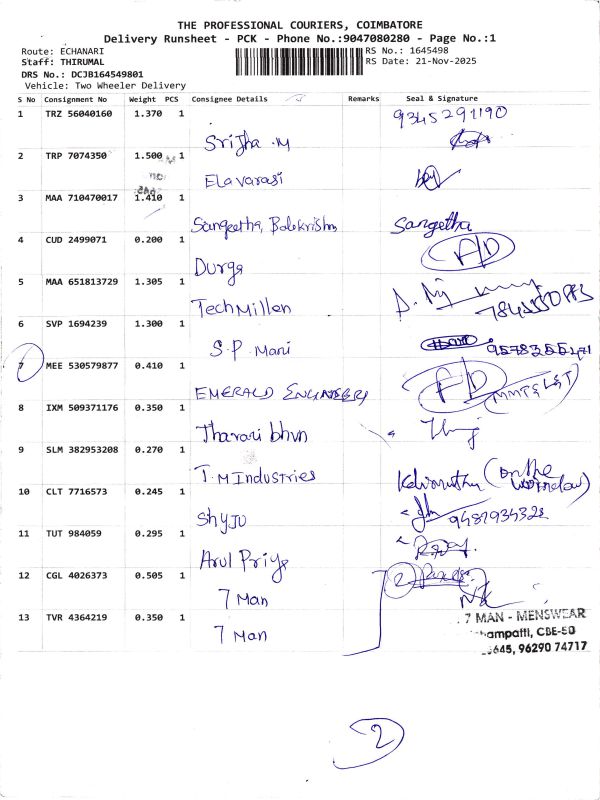 THE PROFESSIONAL COURIERS, COIMBATORE
Delivery Runsheet - PCK - Phone No.:9047080280 - Page No.:1
Route: ECHANARI RS No.: 1645498
Staff: THIRUMAL RS Date: 21-Nov-2025
DRS No.: DCJB164549801
Vehicle: Two Wheeler Delivery
S No Consignment No Weight PCS Consignee Details Remarks Seal & Signature
1 TRZ 56040160 1.370 1 9345291190
Srijha .M
2 TRP 7074350 1.500 1
Elavarasi
3 MAA 710470017 1.410 1
Sangeetha, Balakrishn Sangetha
4 CUD 2499071 0.200 1
Durga
5 MAA 651813729 1.305 1
TechMillen
6 SVP 1694239 1.300 1
S.P. Mani
7 MEE 530579877 0.410 1
EMERALD ENGINEERS
8 IXM 509371176 0.350 1
9 SLM 382953208 0.270 1
T.M Industries
10 CLT 7716573 0.245 1
Shyju 9487934322
11 TUT 984059 0.295 1
Arul Priya
12 CGL 4026373 0.505 1 2
7 Man
13 TVR 4364219 0.350 1 7 MAN - MENSWEAR
7 Man CBE-50
645, 96290 74717
2